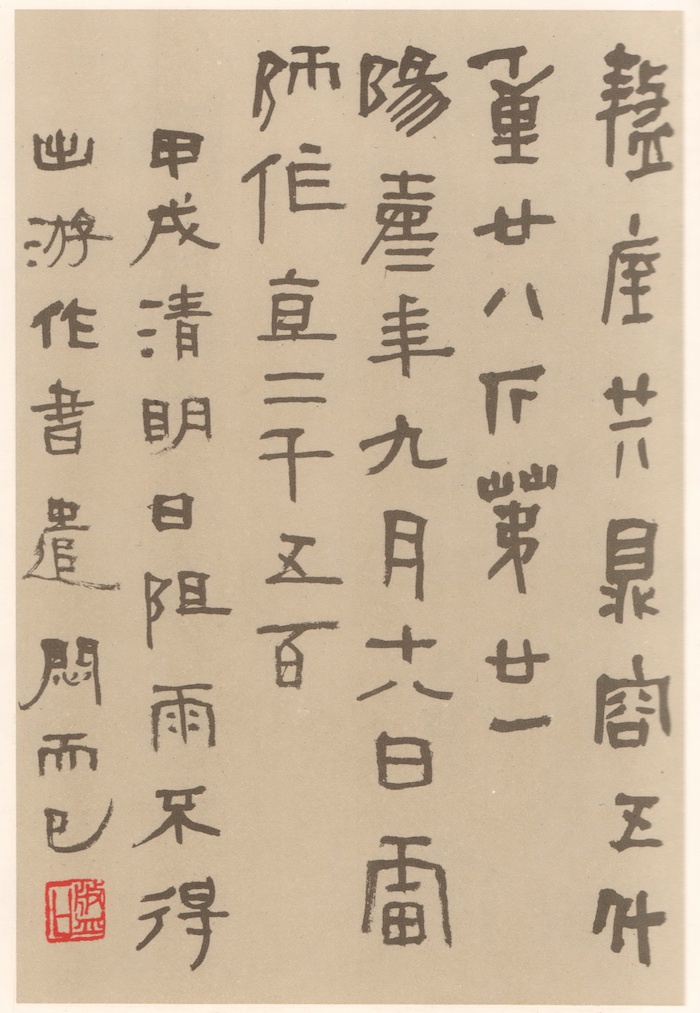 盩厔共鼎容五升
重廿八斤第廿一
陽嘉三年九月十八日雷
師作直二千五百
甲戌清明日阻雨不得
出游作書遣悶而已